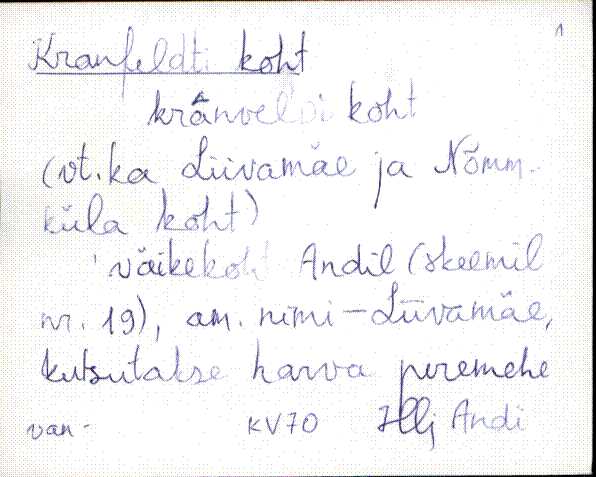 1
Kranfeldti koht
krànvelʾdi koht
(vt. ka Liivamäe ja Nõmm-
küla koht)
väikekoht Andil (skeemil
nr. 19), am. nimi - Liivamäe,
kutsutakse harva peremehe
van- KV70 Jllj Andi